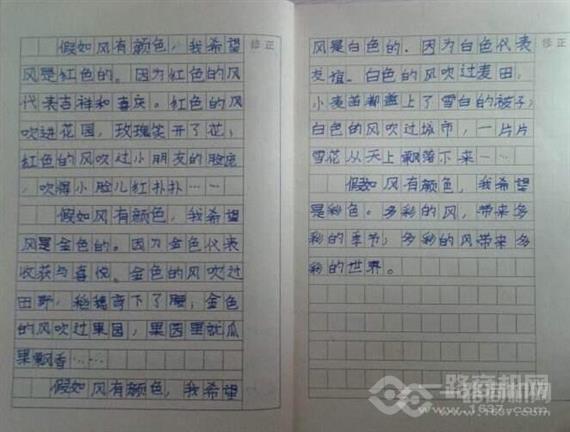 假如风有颜色，我希望
修正
风是红色的。因为红色的风
代表吉祥和喜庆。红红的风
吹进花园，玫瑰笑开了花；
红色的风吹过小朋友的脸庞
，吹得小脸儿红扑扑……
假如风有颜色，我希望
风是金色的。因为金色代表
收获与喜悦。金色的风吹过
田野，稻穗弯下了腰；金色
的风吹过果园，果园里就瓜
果飘香……
假如风有颜色，我希望
风是白色的。因为白色代表
修正
友谊。白色的风吹过麦田，
小麦苗都盖上了雪白的被子；
白色的风吹过城市，一片片
雪花从天上飘落下来……
假如风有颜色，我希望
是彩色。多彩的风，带来多
彩的季节；多彩的风带来多
彩的世界。
一路商机网
www.1637.com